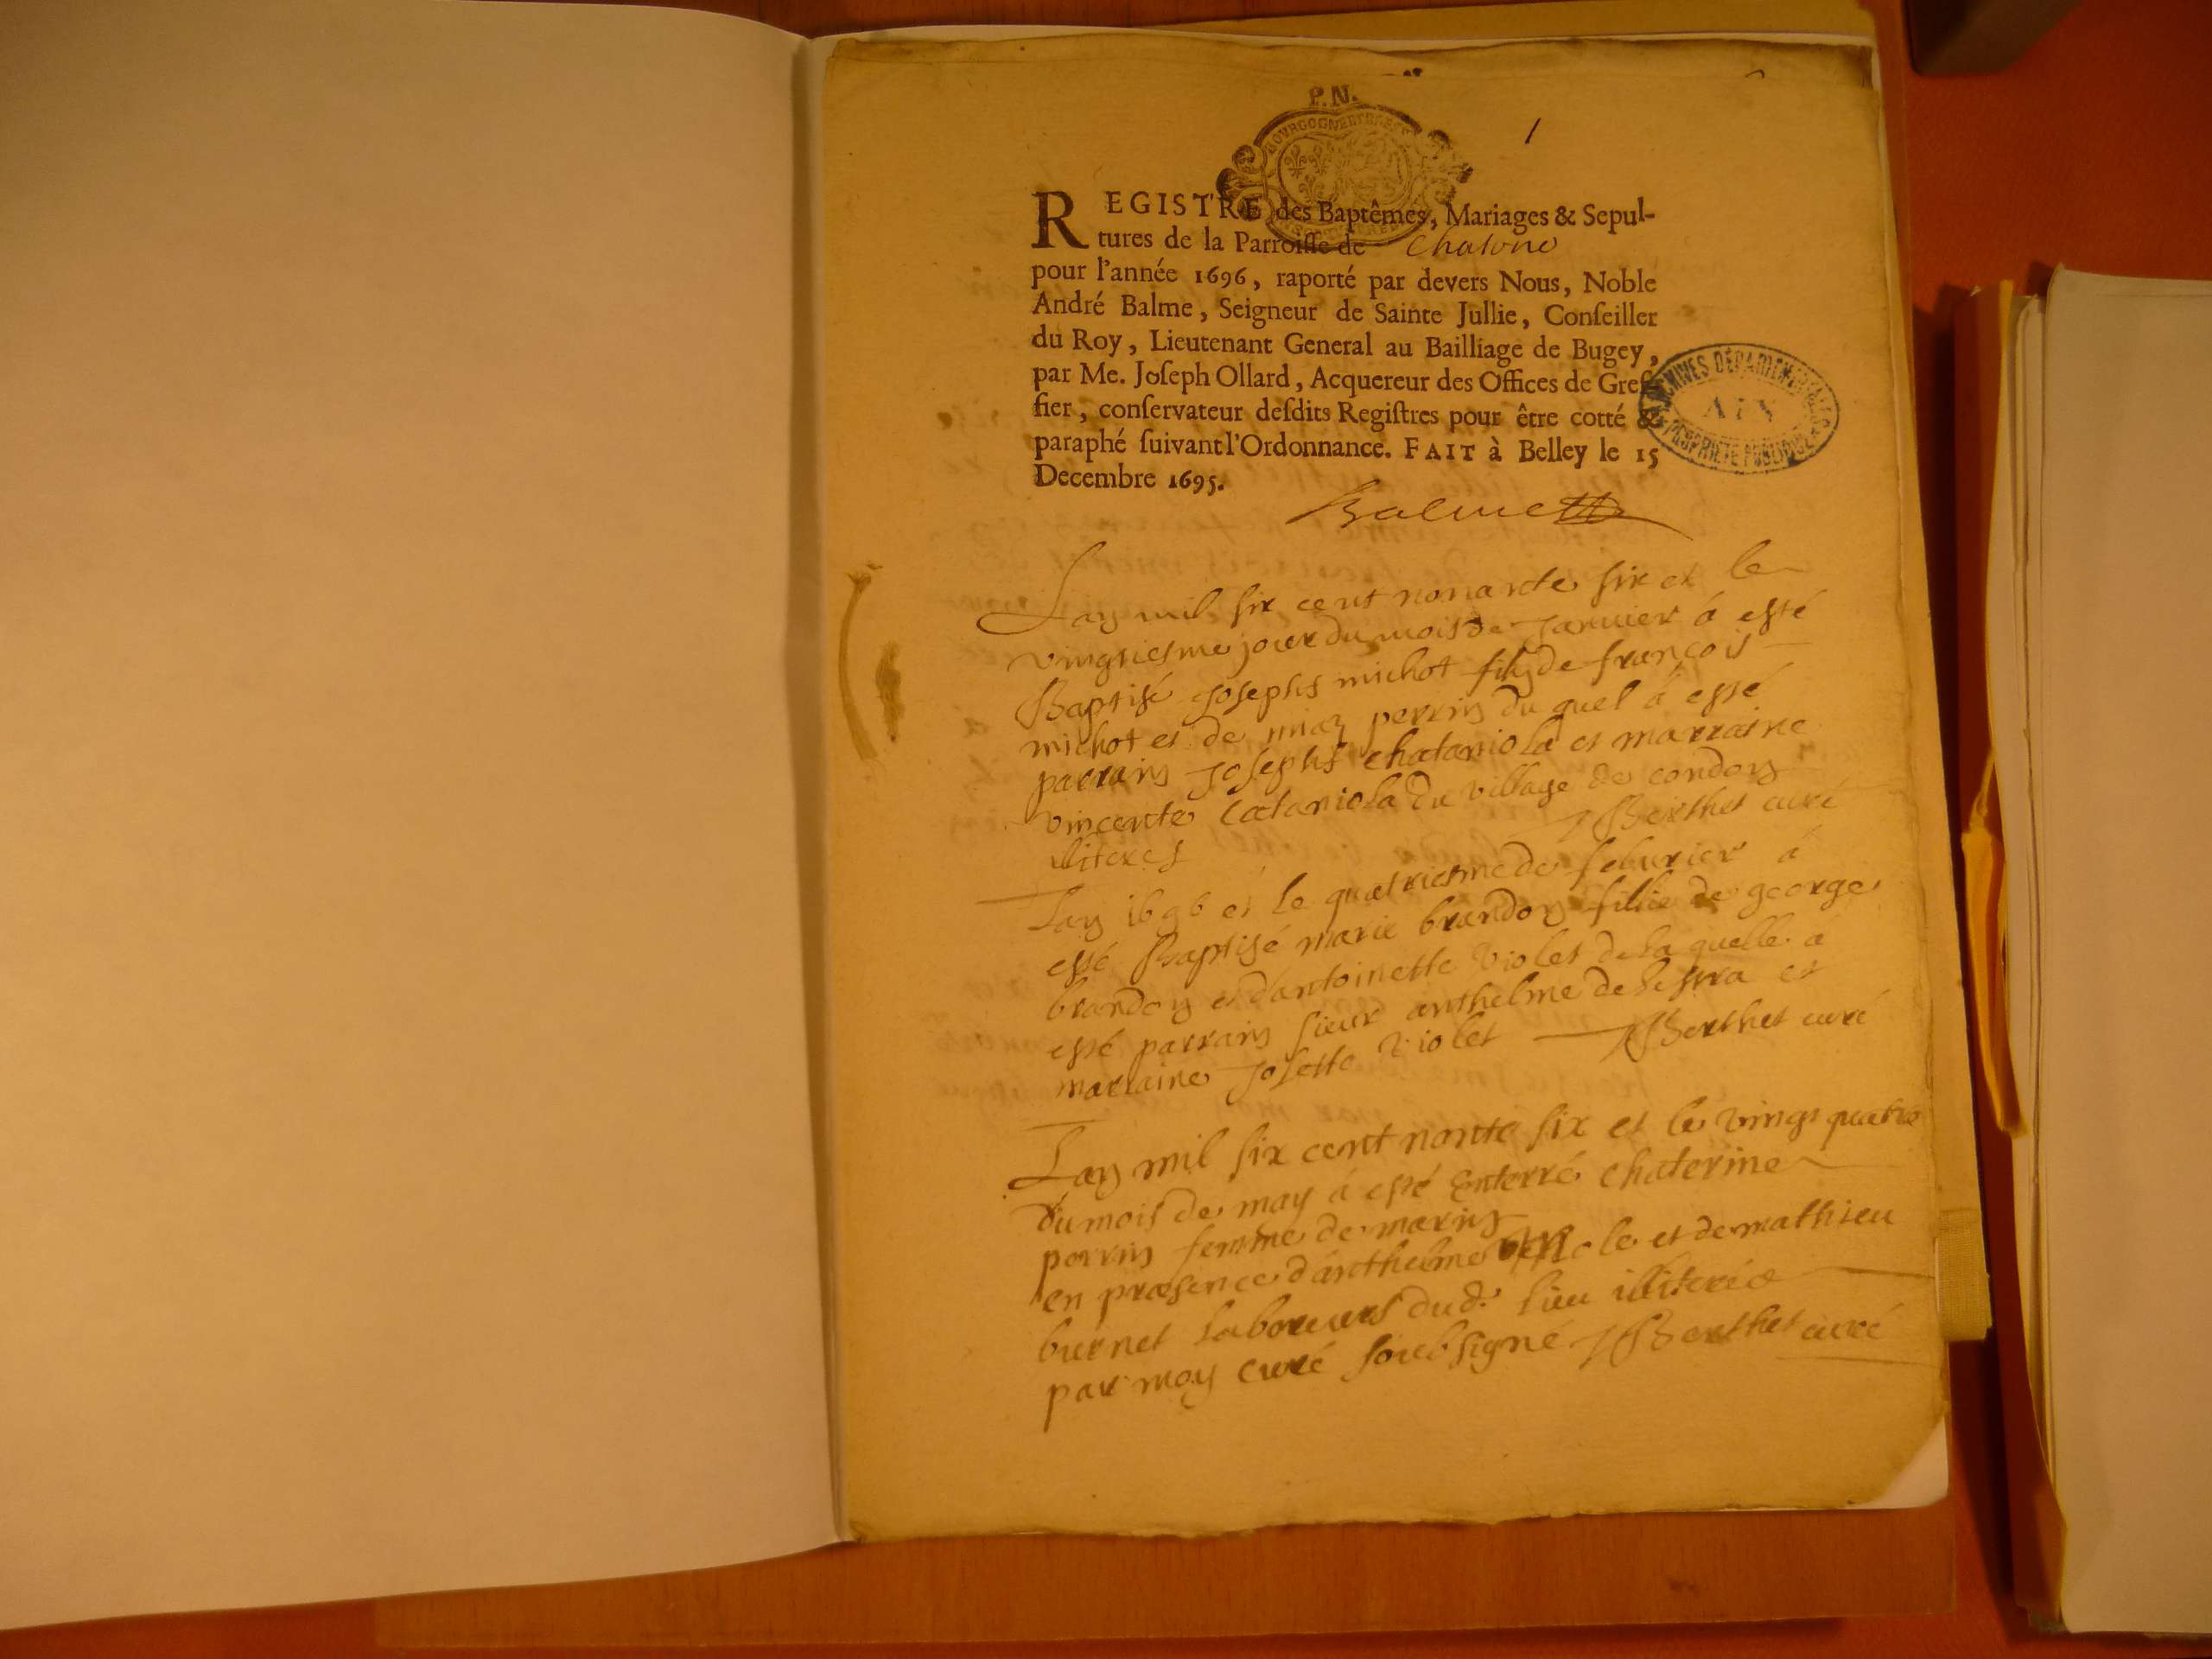 P.N.
1
BOURGOGNE ET BRESSE
REGISTRE des Baptêmes, Mariages & Sepul-
tures de la Parroisse de
pour l'année 1696, raporté par devers Nous, Noble
André Balme, Seigneur de Sainte Jullie, Conseiller
du Roy, Lieutenant General au Bailliage de Bugey,
par Me. Joseph Ollard, Acquereur des Offices de Gref-
fier, conservateur desdits Registres pour être cotté &
paraphé suivant l'Ordonnance. FAIT à Belley le 15
Decembre 1695.
ARCHIVES DÉPARTEMENTALES
AIN
PROPRIÉTÉ PUBLIQUE
Balme
Lan mil six cent nonante six et le
vingtiesme jour du mois de Janvier á esté
Baptisé Josephs michot fils de françois
michot et de perrin du quel á esté
parrain Josephs chataniola et marraine
vincente Cataniola du village de condon
illiteres JBerthet curé
Lan 1696 et le quatriesme de feburier á
esté Baptisé marie brandon fillie de george
brandon et dantoinette violet de la quelle á
esté parrain sieur anthelme de et
marraine Josette violet JBerthet curé
Lan mil six cent nonte six et le vingt quatre
du mois de may á esté Enterré Chaterine
perrin femme de marin
en præsence dánthelme et de mathieu
burnet laboureurs dud. lieu illiteré
par moy curé soubsigné JBerthet curé